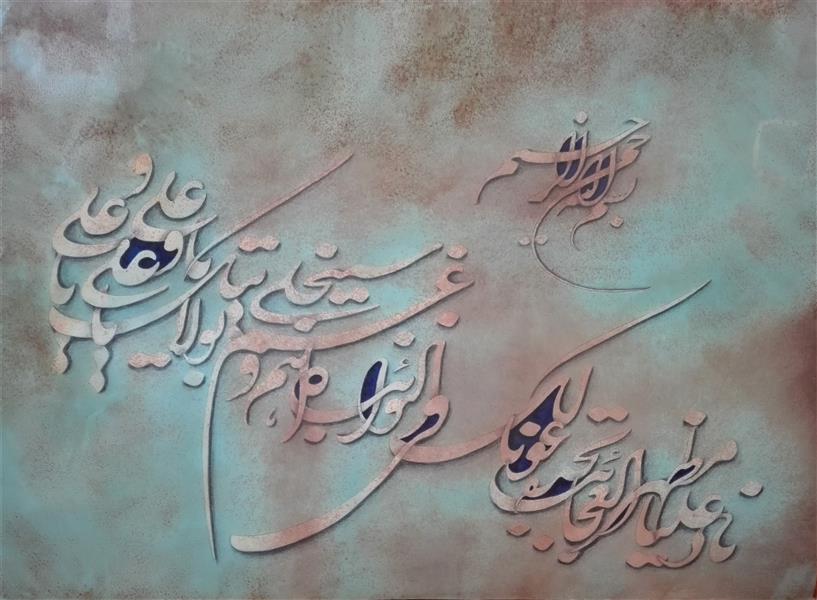 بسم الله الرحمن الرحیم
ناد علیا مظهر العجائب تجده عونا لک
فی النوائب کل هم و غم سینجلی
بولایتک یا علی یا علی یا علی